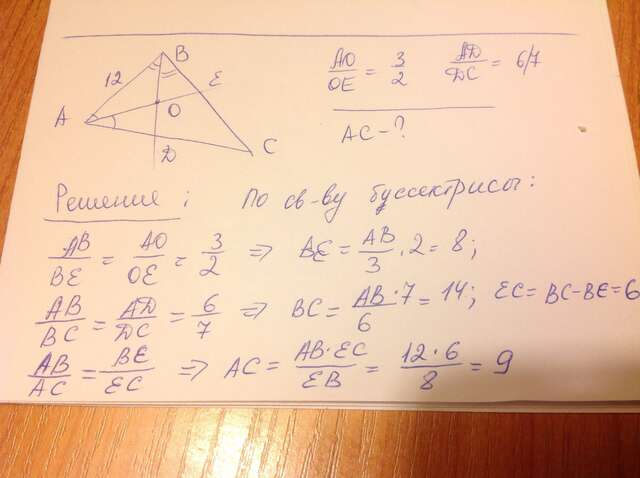 B
12
E
A
O
D
C
AO/OE = 3/2 AD/DC = 6/7
AC - ?
Решение: По св-ву буссектрисы:
AB/BE = AO/OE = 3/2 => BE = AB/3 · 2 = 8;
AB/BC = AD/DC = 6/7 => BC = AB·7/6 = 14; EC = BC - BE = 6
AB/AC = BE/EC => AC = AB·EC/EB = 12·6/8 = 9